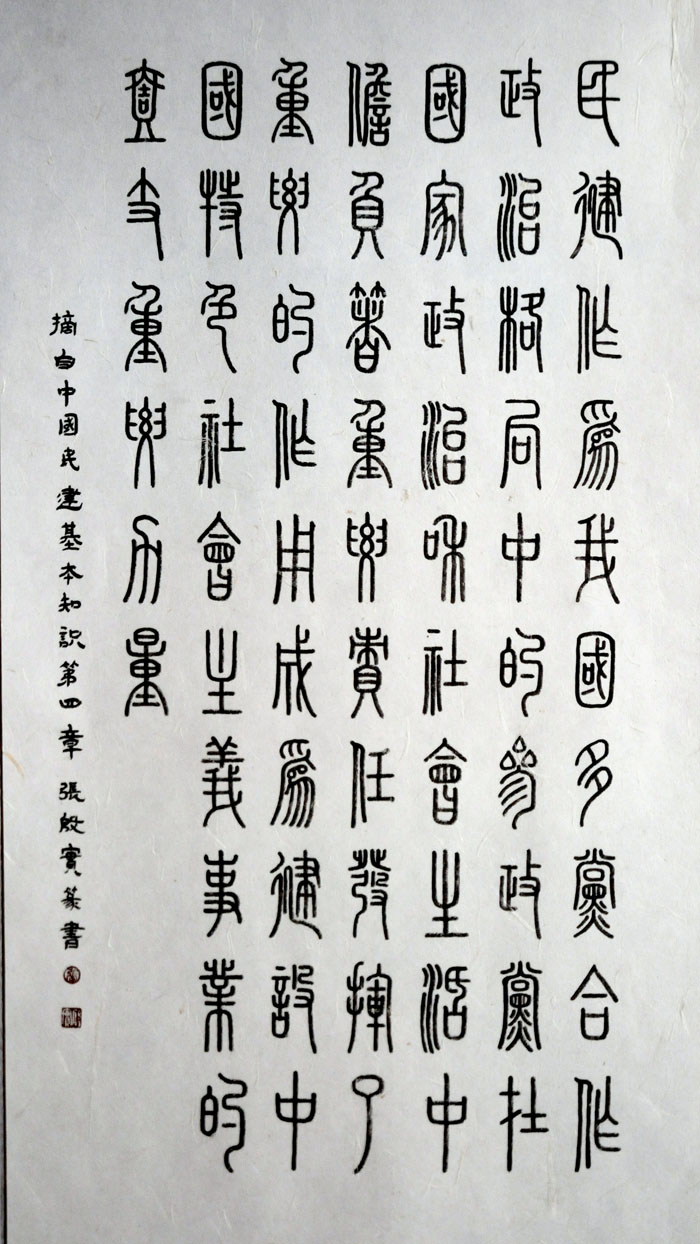 民建作爲我國多黨合作
政治格局中的參政黨在
國家政治和社會生活中
儋負著重要責任發揮了
重要的作用成爲建設中
國特色社會主義事業的
壹支重要力量
摘自中國民建基本知識第四章 張殷實篆書